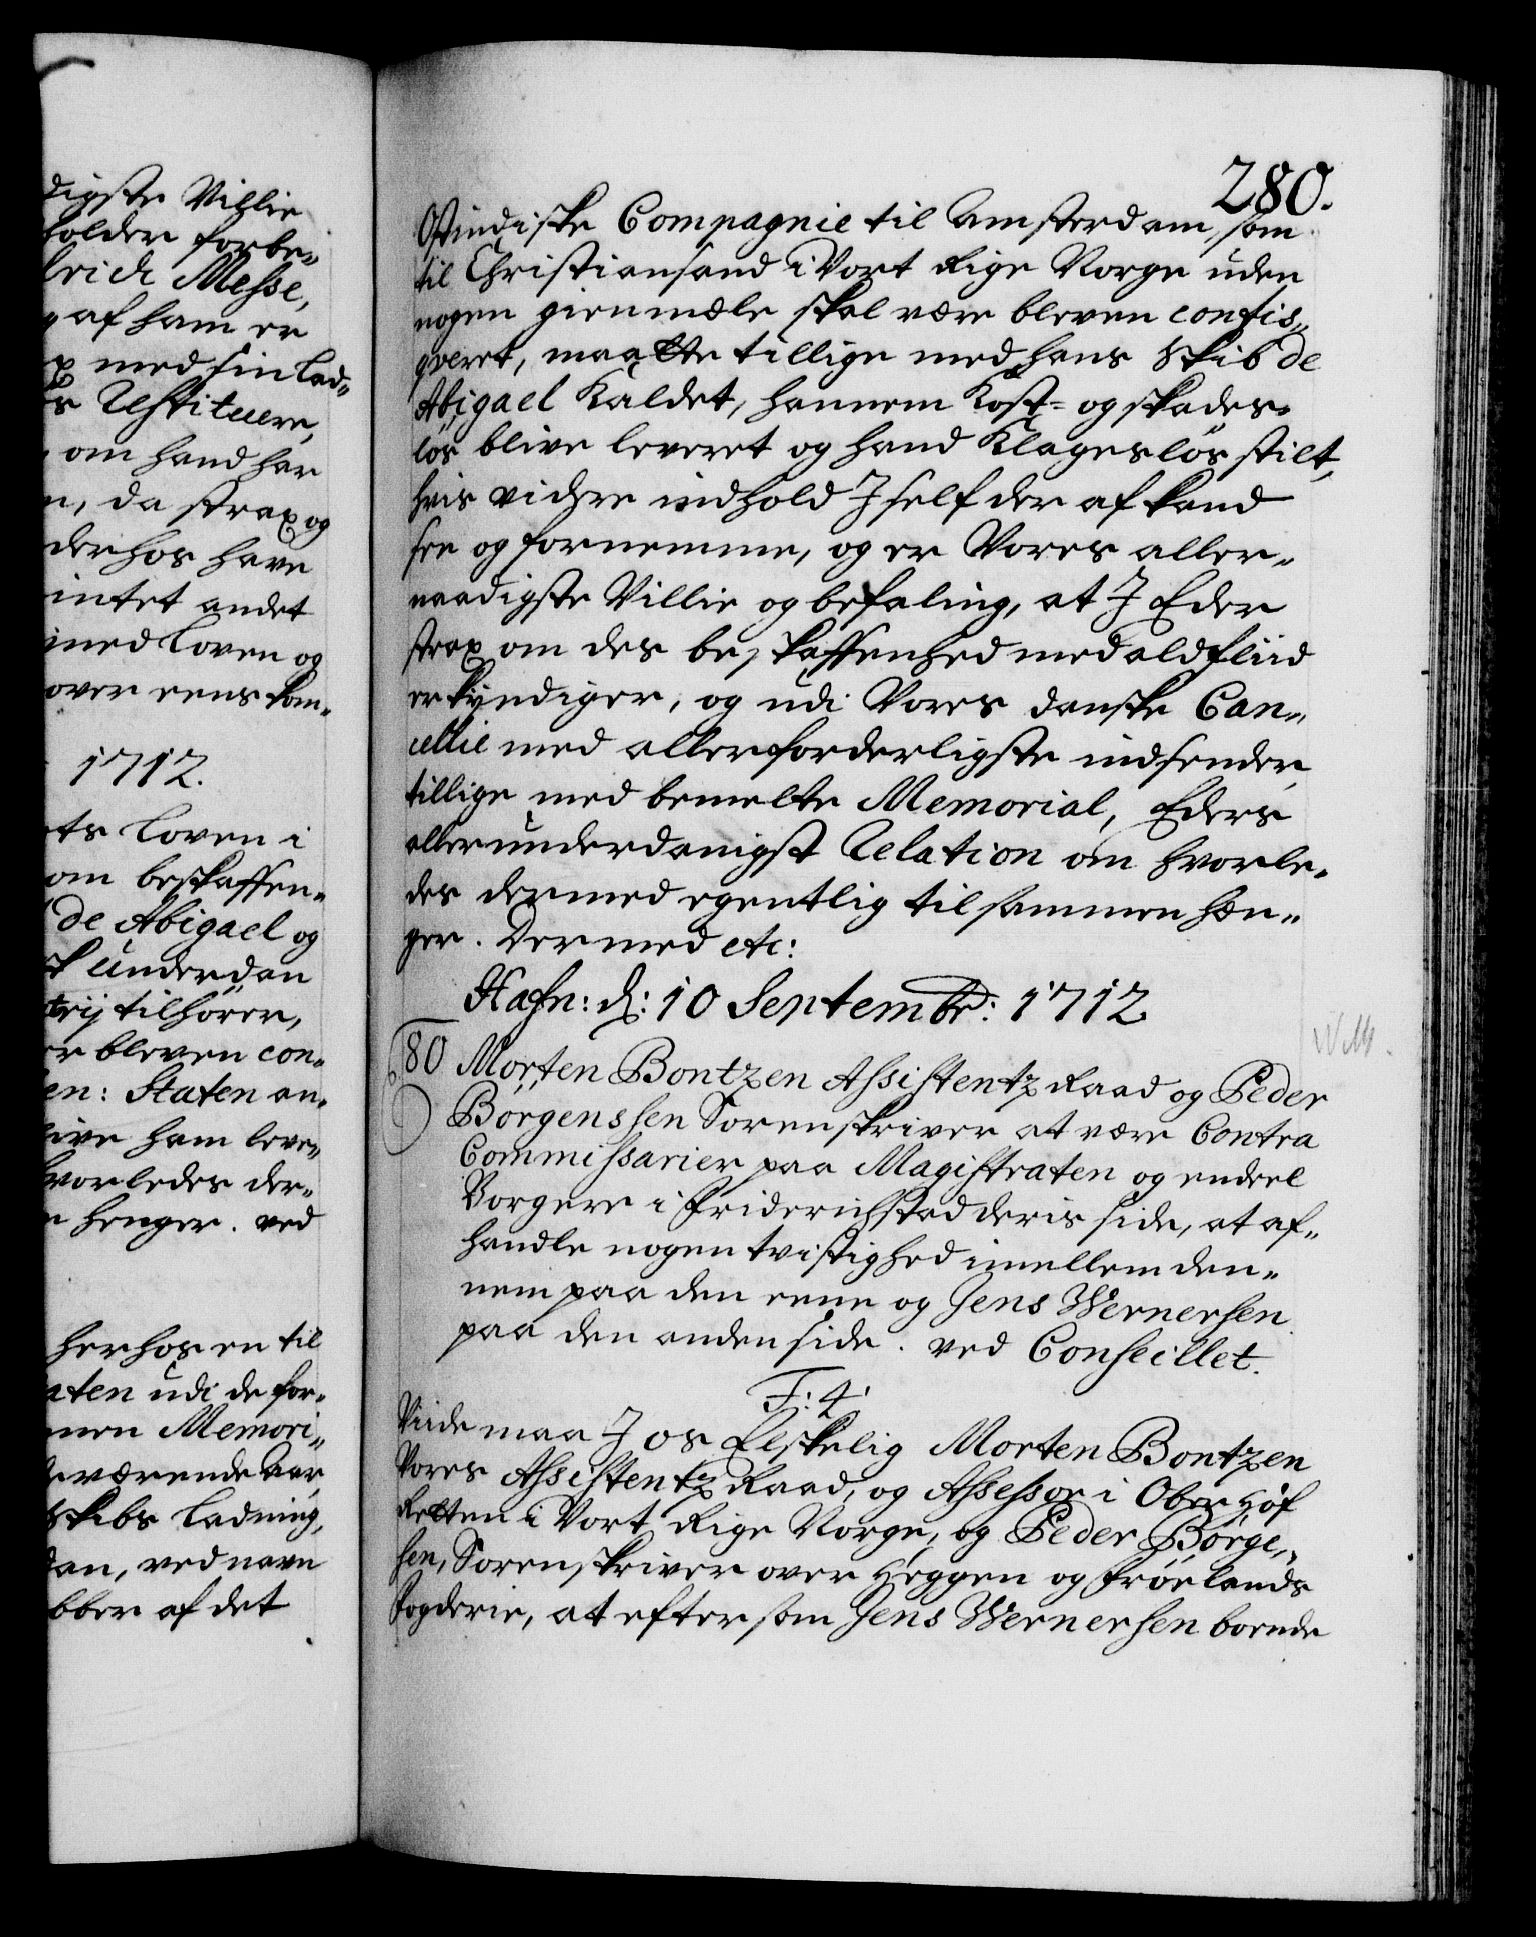 digste Villie
holder forbe¬
lrich Messe,
af ham er
med sin lad¬
Restituere,
om hand har
n, da strax og
derhos have
intet andet
med Loven og
over eens kom¬
1712.
ts Loven i
om beskaffen¬
de Abigael og
underdan
trij tilhører,
er bleven con¬
en: Staten an¬
live ham leve¬
hvorledes der¬
n henger. ved
herhos en til
aten udi de for¬
men Memori¬
værende Aar
skibs Ladning,
dan, ved navn
bber af det
280.
Ostindiske Compagnie til Amsterdam, som
til Christiansand i Vort Rige Norge uden
nogen gienmæle skal være bleven confis¬
qveret, maatte tillige med hans Skib de
Abigael Kaldet, hannem Kost- og skades-
løs blive leveret og hand Klagesløs stilt,
hvis videre indhold I self der af kand
see og fornemme, og er Vores aller¬
naadigste Villie og befaling, at I Eder
strax om des beskaffenhed med ald fliid
erkyndiger, og udi Vores danske Can¬
cellie med allerforderligste indsender
tillige med bemelte Memorial, Eders
allerunderdanigst Relation om hvorle¬
des dermed egentlig tilsammen hæn¬
ger. Dermed etc:
Hafn: d: 10 Septembr: 1712
80 Morten Bontzen Assistentz Raad og Peder
Børgenssen Sorenskriver at være Contra
Commissarier paa Magistraten og endeel
Borgere i Friderichstad deris side, at af¬
handle nogen tvistighed imellem den¬
nem paa den eene og Jens Wernersen
paa den anden side. ved Conseillet.
F: 4.
Viide maa I os Elskelig Morten Bontzen
Vores Assistentz Raad, og Assessor i Ober Hof
Retten i Vort Rige Norge, og Peder Børge¬
sen, Sorenskriver over Heggen og Frøelands
Fogderie, at eftersom Jens Wernersen boende